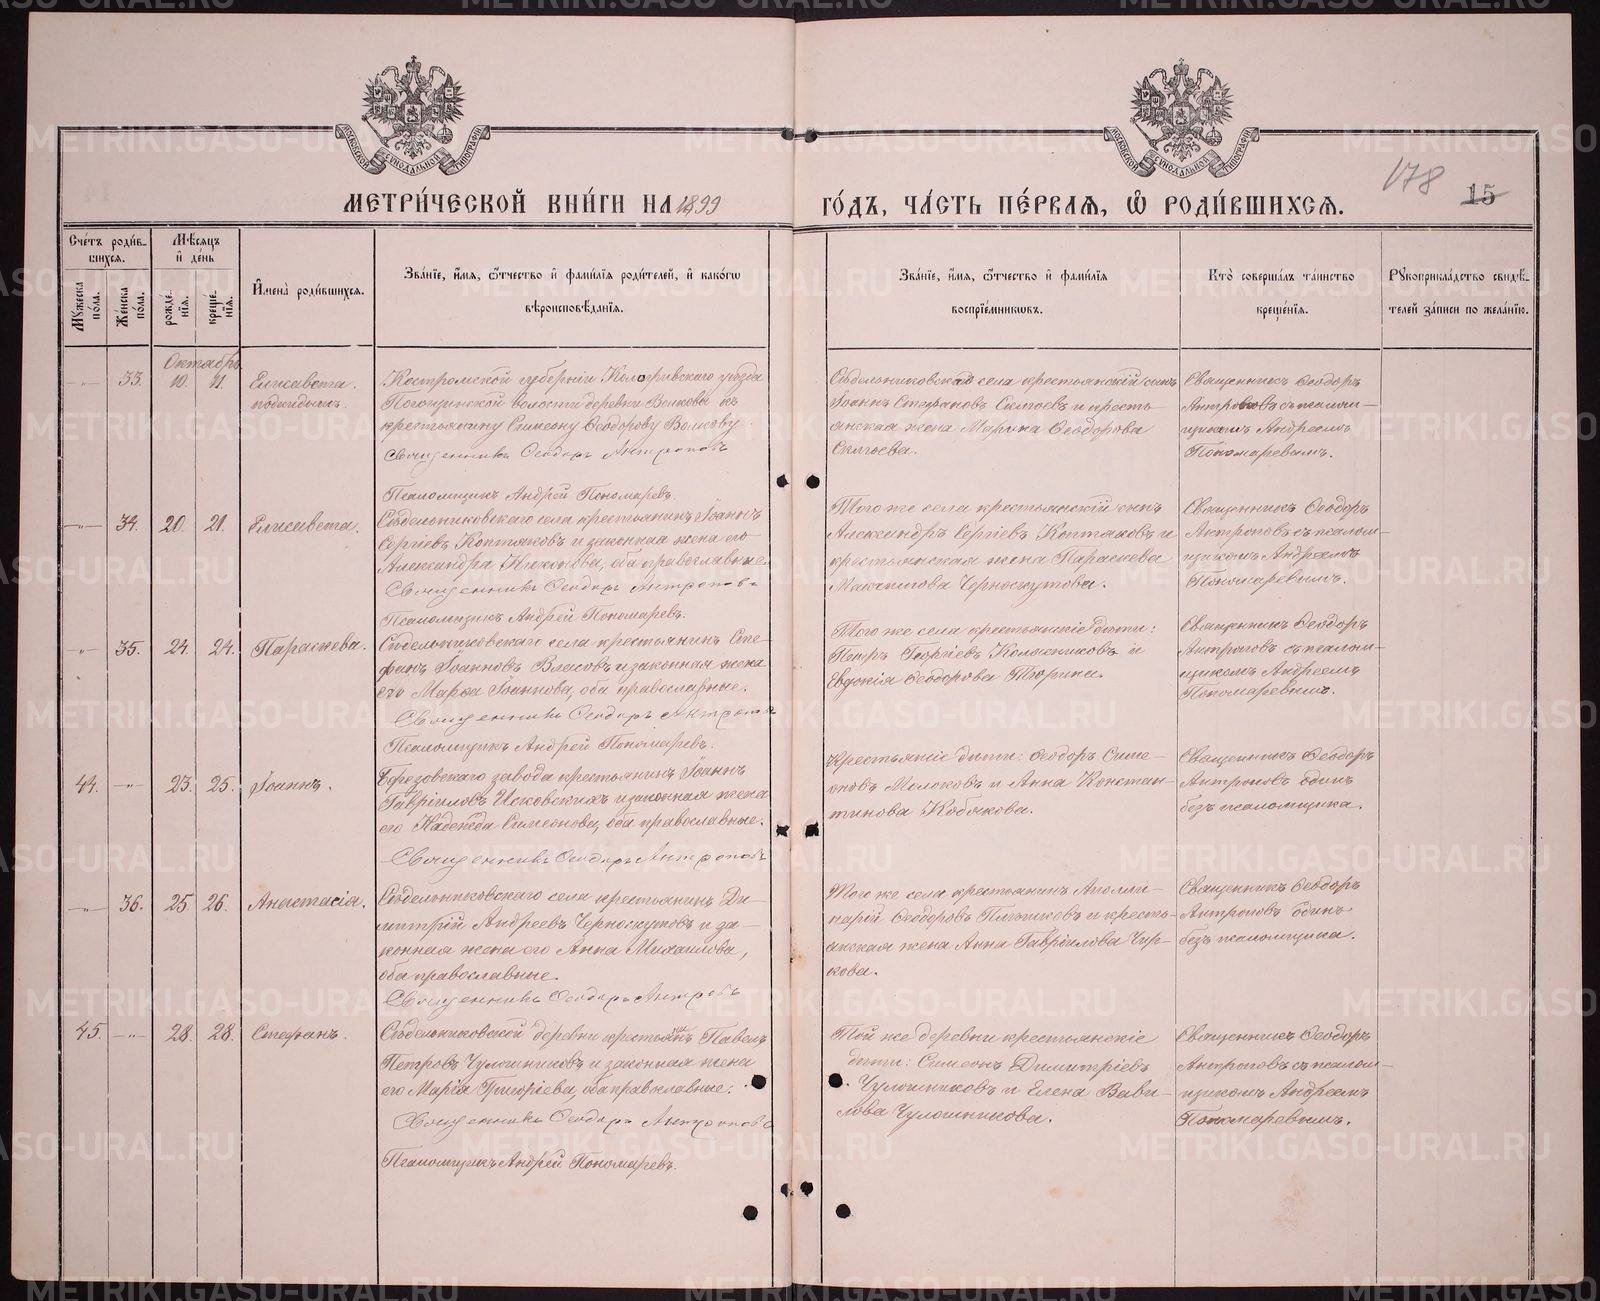 МЕТРИ́ЧЕСКОЙ КНИ́ГИ НА 1899
ГО́ДЪ, ЧА́СТЬ ПЕ́РВАЯ, Ѡ РОДИ́ВШИХСЯ.
178
15
Сче́тъ роди́вшихся.
Му́жеска пола.
Же́нска по́ла.
Мѣ́сяцъ и де́нь
рожде́нїя.
креще́нїя.
Имена̀ роди́вшихся.
Зва́нїе, и́мя, ѻ́тчество и фами́лїя роди́телей, и како́гѡ
вѣроисповѣ́данїя.
Зва́нїе, и́мя, ѻ́тчество и фами́лїя
воспрїе́мниковъ.
Кто̀ соверша́лъ та́инство
креще́нїя.
Рукоприкла́дство свидѣ́-
телей за́писи по жела́нїю.
Октябрь
-"- 33. 10. 11. Елисавета.
подкидышъ.
Костромской губернiи Кологривскаго уѣзда
волости деревни Волковы къ
крестьянину Симеону Ѳеодорову Волкову.
Священникъ Ѳеодоръ Антроповъ
Псаломщикъ Андрей Пономаревъ.
села крестьянскiй сынъ
Iоаннъ Стефановъ и кресть-
янская жена Марина Ѳеодорова
Священникъ Ѳеодоръ
Антроповъ съ псалом-
щикомъ Андреемъ
Пономаревымъ.
-"- 34. 20. 21. Елисавета.
Сѣдельниковскаго села крестьянинъ Iоаннъ
Сергiевъ Коптяковъ и законная жена его
Александра Никонова, оба православные.
Священникъ Ѳеодоръ Антроповъ
Псаломщикъ Андрей Пономаревъ.
Того же села крестьянскiй сынъ
Александръ Сергiевъ Коптяковъ и
крестьянская жена Параскева
Максимова Черноскутова.
Священникъ Ѳеодоръ
Антроповъ съ псалом-
щикомъ Андреемъ
Пономаревымъ.
-"- 35. 24. 24. Параскева.
Сѣдельниковскаго села крестьянинъ Сте-
фанъ Iоанновъ Власовъ и законная жена
его Марѳа Iоаннова, оба православные.
Священникъ Ѳеодоръ Антроповъ
Псаломщикъ Андрей Пономаревъ.
Того же села крестьянскiе дѣти:
Петръ Георгiевъ Колясниковъ и
Евдокiя Ѳеодорова Тюрина.
Священникъ Ѳеодоръ
Антроповъ съ псалом-
щикомъ Андреемъ
Пономаревымъ.
44. -"- 23. 25. Iоаннъ.
Березовскаго завода крестьянинъ Iоаннъ
Гаврiиловъ Исковскихъ и законная жена
его Надежда Симеонова, оба православные.
Священникъ Ѳеодоръ Антроповъ
Крестьянскiе дѣти: Ѳеодоръ Симе-
оновъ Молоковъ и Анна Констан-
тинова Кобякова.
Священникъ Ѳеодоръ
Антроповъ одинъ
безъ псаломщика.
-"- 36. 25. 26. Анастасiя.
Сѣдельниковскаго села крестьянинъ Ди-
митрiй Андреевъ Черноскутовъ и за-
конная жена его Анна Михаилова,
оба православные.
Священникъ Ѳеодоръ Антроповъ
Того же села крестьянинъ Аполли-
нарiй Ѳеодоровъ и кресть-
янская жена Анна Гаврiилова Чир-
кова.
Священникъ Ѳеодоръ
Антроповъ одинъ
безъ псаломщика.
45. -"- 28. 28. Стефанъ.
Сѣдельниковской деревни крестьянинъ Павелъ
Петровъ Чулошниковъ и законная жена
его Марiя Григорiева, оба православные.
Священникъ Ѳеодоръ Антроповъ
Псаломщикъ Андрей Пономаревъ.
Той же деревни крестьянскiе
дѣти: Симеонъ Димитрiевъ
Чулошниковъ и Елена Вави-
лова Чулошникова.
Священникъ Ѳеодоръ
Антроповъ съ псалом-
щикомъ Андреемъ
Пономаревымъ.
METRIKI.GASO-URAL.RU